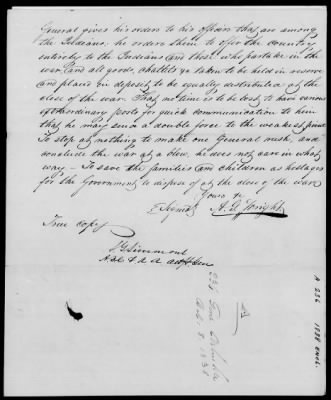 General gives his orders to his officers that are among
the Indians; he orders them to offer the Country
entirely to the Indians and those who partake in the
war, and all goods, chattels &c taken to be held in reserve
and placed in deposit to be equally distributed at the
close of the war. That no time is to be lost to have various
extraordinary posts for quick communication to them
that he may send a double force to the weakest point
To stop at nothing to make one General rush, and
conclude the war at a blow, he does not care in what
way - To save the families and children as hostages
for the Government to dispose of at the close of the war
Yours &c
Signed A. D. Wright
True copy
A.D.C & A A Adjt Gen
A 236 1838 encl.